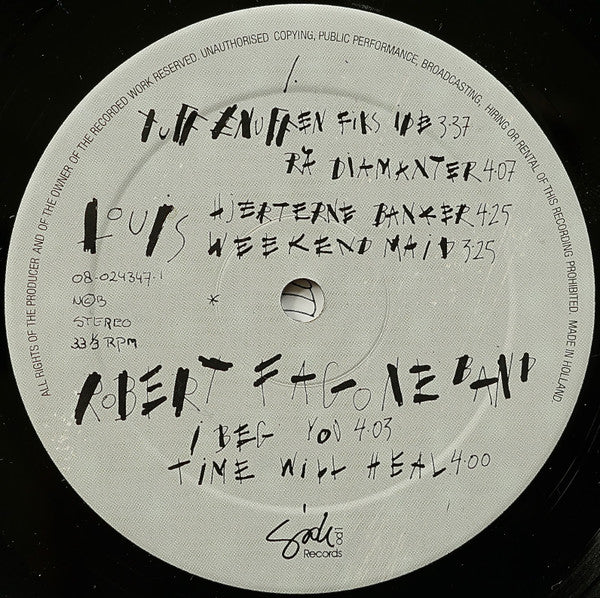 ALL RIGHTS OF THE PRODUCER AND OF THE OWNER OF THE RECORDED WORK RESERVED. UNAUTHORISED COPYING, PUBLIC PERFORMANCE, BROADCASTING, HIRING OR RENTAL OF THIS RECORDING PROHIBITED. MADE IN HOLLAND.
1.
TUFF ENUFF EN FIKS IDE 3.37
RÅ DIAMANTER 4.07
LOUIS HJERTERNE BANKER 4.25
WEEKEND MAID 3.25
08-024347-1
N©B
STEREO
33 1/3 RPM
*
ROBERT FAGONE BAND
I BEG YOU 4.03
TIME WILL HEAL 4.00
Records